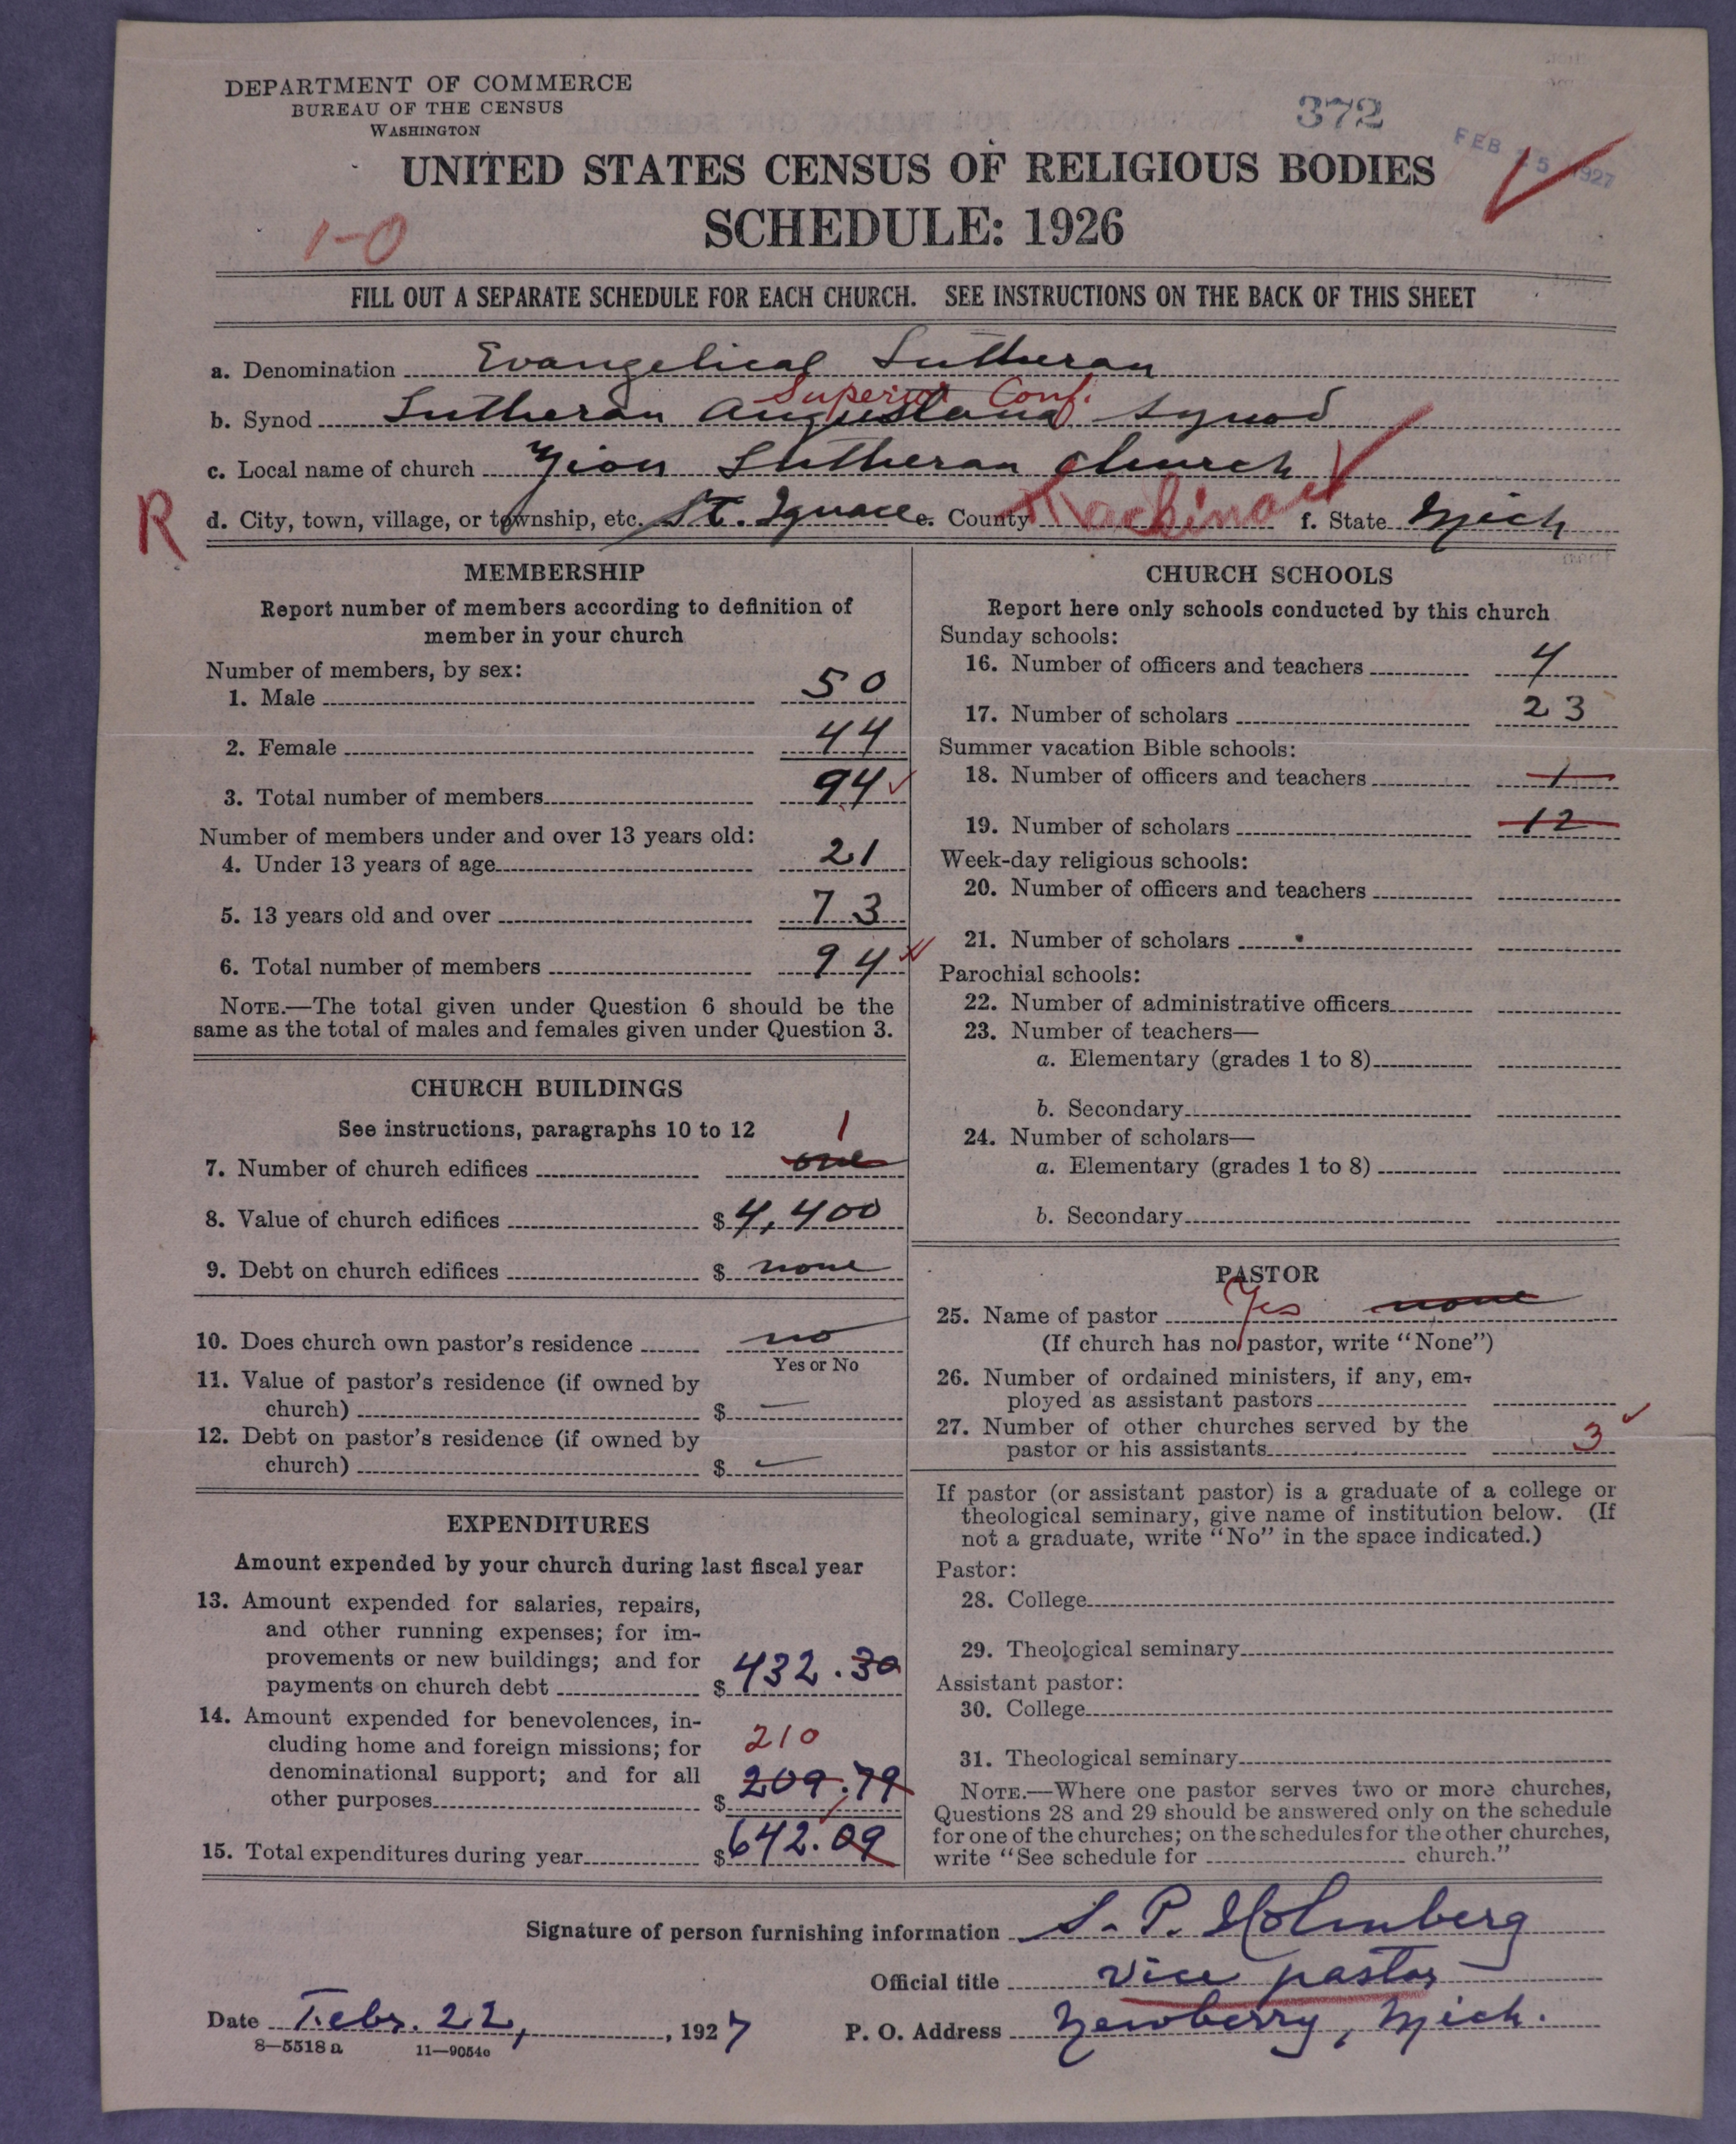 DEPARTMENT OF COMMERCE
BUREAU OF THE CENSUS
WASHINGTON
372
FEB 25 1927
UNITED STATES CENSUS OF RELIGIOUS BODIES
SCHEDULE: 1926
1-0
FILL OUT A SEPARATE SCHEDULE FOR EACH CHURCH. SEE INSTRUCTIONS ON THE BACK OF THIS SHEET
a. Denomination Evangelical Lutheran
Superior Conf.
b. Synod Lutheran Augustana Synod
c. Local name of church Zion Lutheran Church
R
d. City, town, village, or township, etc. St. Ignace e. County Mackinac f. State Mich
MEMBERSHIP
Report number of members according to definition of
member in your church
Number of members, by sex:
1. Male 50
2. Female 44
3. Total number of members 94
Number of members under and over 13 years old:
4. Under 13 years of age 21
5. 13 years old and over 73
6. Total number of members 94
NOTE.—The total given under Question 6 should be the
same as the total of males and females given under Question 3.
CHURCH BUILDINGS
See instructions, paragraphs 10 to 12
1
7. Number of church edifices one
8. Value of church edifices $ 4,400
9. Debt on church edifices $ none
10. Does church own pastor's residence no
Yes or No
11. Value of pastor's residence (if owned by
church) $ —
12. Debt on pastor's residence (if owned by
church) $ —
EXPENDITURES
Amount expended by your church during last fiscal year
13. Amount expended for salaries, repairs,
and other running expenses; for im-
provements or new buildings; and for
payments on church debt $ 432.30
14. Amount expended for benevolences, in-
cluding home and foreign missions; for
210
denominational support; and for all
other purposes $ 209.79
15. Total expenditures during year $ 642.09
CHURCH SCHOOLS
Report here only schools conducted by this church
Sunday schools:
16. Number of officers and teachers 4
17. Number of scholars 23
Summer vacation Bible schools:
18. Number of officers and teachers 1
19. Number of scholars 12
Week-day religious schools:
20. Number of officers and teachers
21. Number of scholars
Parochial schools:
22. Number of administrative officers
23. Number of teachers—
a. Elementary (grades 1 to 8)
b. Secondary
24. Number of scholars—
a. Elementary (grades 1 to 8)
b. Secondary
PASTOR
25. Name of pastor Yes none
(If church has no pastor, write "None")
26. Number of ordained ministers, if any, em-
ployed as assistant pastors
27. Number of other churches served by the
pastor or his assistants 3
If pastor (or assistant pastor) is a graduate of a college or
theological seminary, give name of institution below. (If
not a graduate, write "No" in the space indicated.)
Pastor:
28. College
29. Theological seminary
Assistant pastor:
30. College
31. Theological seminary
NOTE.—Where one pastor serves two or more churches,
Questions 28 and 29 should be answered only on the schedule
for one of the churches; on the schedules for the other churches,
write "See schedule for church."
Signature of person furnishing information S. P. Holmberg
Official title Vice pastor
Date Febr. 22, 1927 P. O. Address Newberry, Mich.
8—5518 a 11—9054c